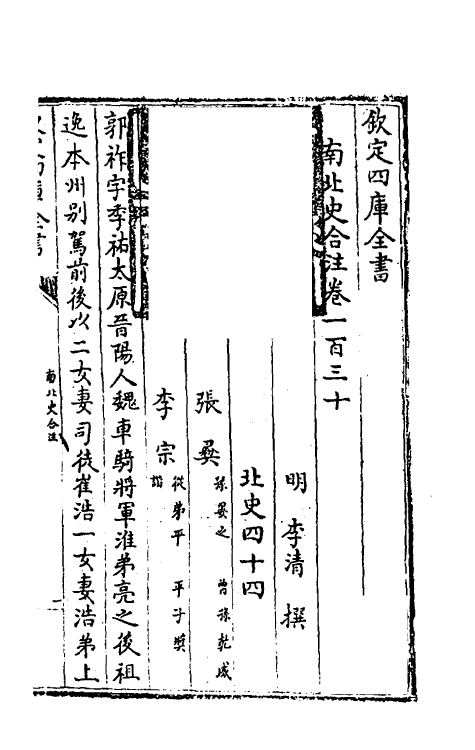 欽定四庫全書
南北史合注卷一百三十
明 李清 撰
北史四十四
張彝 孫晏之 曾孫乾威
李宗 從弟平 平子奬 諧
郭祚字季祐太原晉陽人魏車騎將軍淮弟亮之後祖
逸本州别駕前後以二女妻司徒崔浩一女妻浩弟上
南北史合注